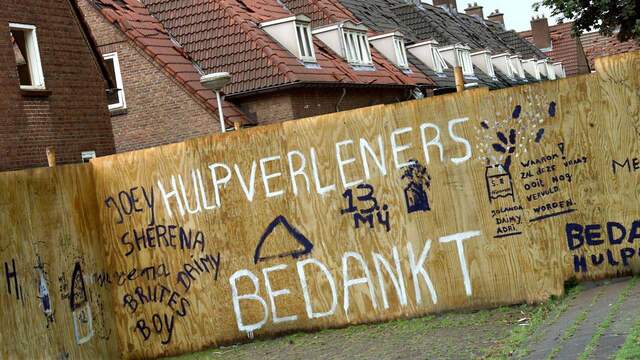 HULPVERLENERS
BEDANKT
JOEY
SHERENA
DAIMY
BRUTES
BOY
13
M4
WAAROM
ZAL DEZE
VRAAG
OOIT NOG
VERVULD
WORDEN.
JOLANDA
DAIMY
ADRI.
BEDA
HULP
ME
H